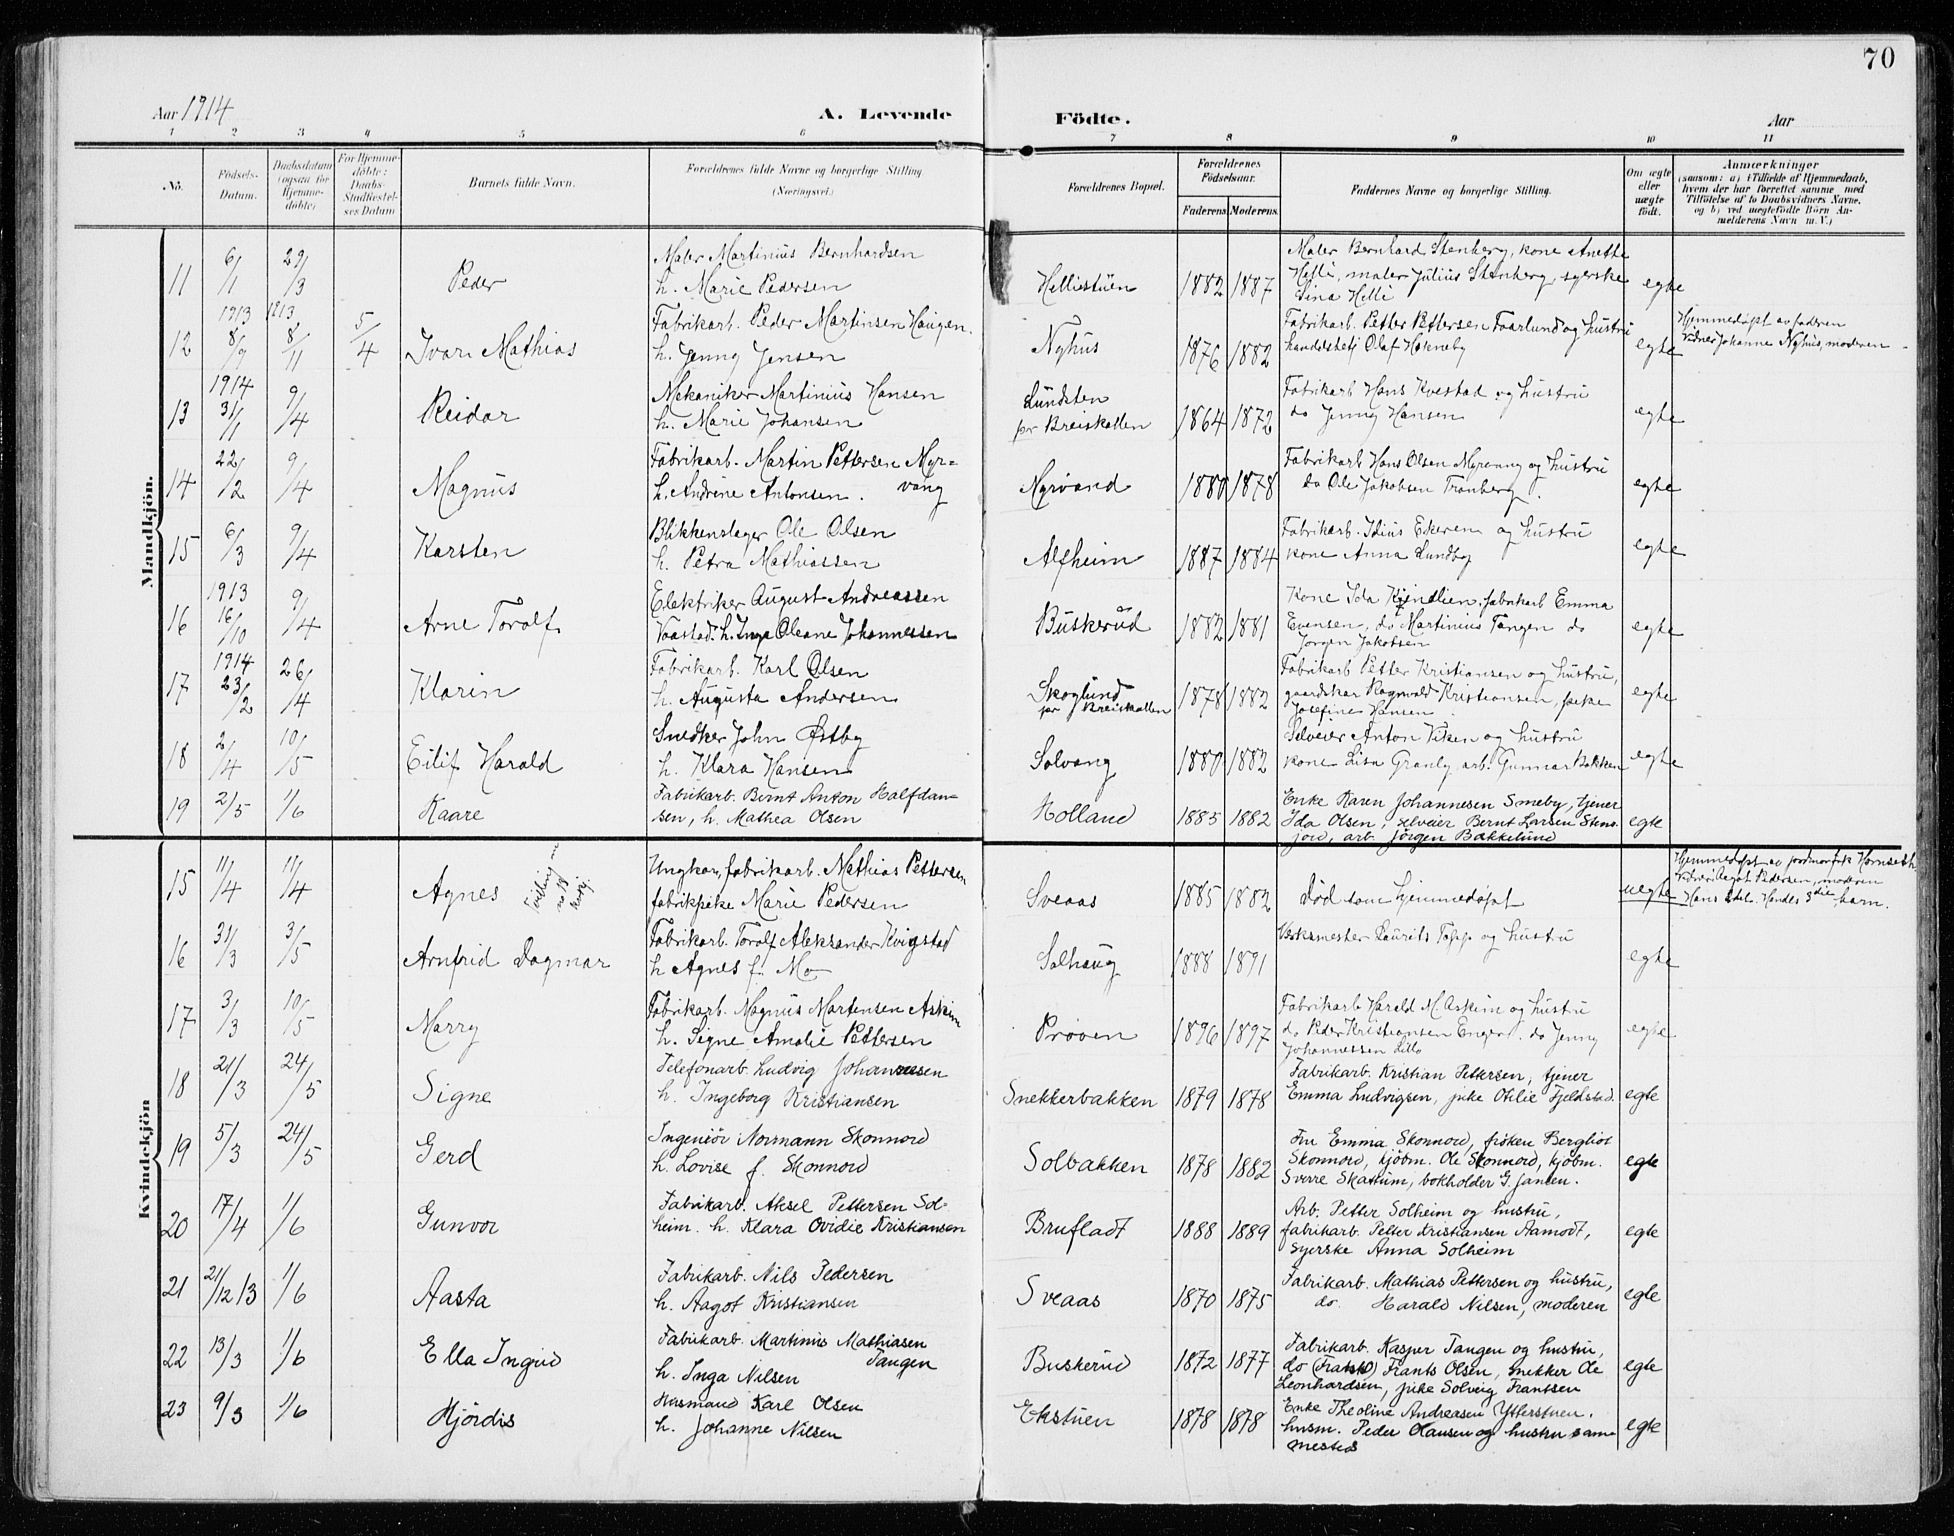 70
Aar 1914
A. Levende
Födte.
Aar
1 2 3 4 5 6 7 8 9 10 11
No.
Födsels-
Datum.
Daabsdatum
(ogsaa for
Hjemme-
döbte)
For Hjemme-
döbte:
Daabs-
Stadfæstel-
ses Datum
Barnets fulde Navn.
Forældrenes fulde Navne og borgerlige Stilling
(Næringsvei.)
Forældrenes Bopæl.
Forældrenes
Födselsaar.
Faderens Moderens
Faddernes Navne og borgerlige Stilling.
Om ægte
eller
uægte
födt.
Anmærkninger
(saasom: a) i Tilfælde af Hjemmedaab,
hvem der har forrettet samme med
Tilföielse af to Daabsvidners Navne.
og b) ved uægtefödte Börn An-
melderens Navn m. V.)
Mandkjön.
11 6/1 29/3 Peder
Maler Martinius Bernhardsen
h. Marie Pedersen
Hellistuen 1882 1887
Maler Bernhard Stenberg, kone Anette
Helli, maler Julius Stenberg, syerske
Lina Helli
egte
12 1913 8/9 1913 8/11 5/4 Ivar Mathias
Fabrikarb. Peder Martinsen Haugen.
h. Jenny Jensen
Nyhus 1876 1882
Fabrikarb. Petter Pettersen Faarlund og hustru
handelsbetj Olaf Hekneby
egte
Hjemmedøpt av faderen
Vidner Johanne Nyhus, moderen
13 1914 31/1 9/4 Reidar
Mekaniker Martinius Hansen
h. Marie Johansen
Lundsten
pr Breiskallen
1864 1872
Fabrikarb Hans Kvestad og hustru
do Jenny Hansen
egte
14 22/2 9/4 Magnus
Fabrikarb. Martin Pettersen Myr-
h. Andrine Antonsen. vang
Myrvand 1880 1878
Fabrikarb Hans Olsen Myrvang og hustru
do Ole Jakobsen Tranberg.
egte
15 6/3 9/4 Karsten
Blikkenslager Ole Olsen
h. Petra Mathiassen
Alfheim 1887 1884
Fabrikarb. Idius Ekeren og hustru
kone Anna Lundby
egte
16 1913 16/10 9/4 Arne Torolf.
Elektriker August Andreassen
Vaastad. h. Inga Oleane Johannessen
Buskerud 1882 1881
Kone Ida Kjendlien. fabrikarb Emma
Evensen, do Martinius Tangen do
Jørgen Jakobsen
egte
17 1914 23/2 26/4 Klarin
Fabrikarb. Karl Olsen
h. Augusta Andersen
Skoglund
pr Breiskallen
1878 1882
Fabrikarb Petter Kristiansen og hustru,
gaardskar Ragnvald Kristiansen, pike
Josefine Hansen
egte
18 2/4 10/5 Eilif Harald
Snedker John Østby
h. Klara Hansen
Solvang 1880 1882
Selveier Anton Viken og hustru
kone Lisa Granly arb. Gunnar Bakken
egte
19 2/5 1/6 Kaare
Fabrikarb. Bernt Anton Halfdan-
sen, h. Mathea Olsen
Holland 1885 1882
Enke Karen Johannesen Smeby, tjener
Ida Olsen, selveier Bernt Larsen Stens-
jord, arb. Jørgen Bakkelund
egte
Kvindekjön
15 11/4 11/4 Agnes
Ungkar, fabrikarb. Mathias Pettersen
fabrikpike Marie Pedersen
Sveaas 1885 1882
Død som hjemmedøpt
uegte
Hjemmedøpt av jordmor frk Hornseth
Hans 2det. Hendes 3die barn.
16 31/3 3/5 Arnfrid Dagmar
Fabrikarb. Torolf Aleksander Kvigstad
h Agnes f. Mo
Solhaug 1888 1891
Verksmester Laurits Topp og hustru
egte
17 3/3 10/5 Marry
Fabrikarb. Magnus Martensen Askim
h. Signe Amalie Pettersen
Prøven 1896 1897
Fabrikarb Harald M. Askim og hustru
do Peder Kristiansen Enger. do Jenny
Johannessen Lillo
egte
18 21/3 24/5 Signe
Telefonarb. Ludvig Johannesen
h. Ingeborg Kristiansen
Snekkerbakken 1879 1878
Fabrikarb. Kristian Pettersen, tjener
Emma Ludvigsen, pike Otilie Fjeldstad.
egte
19 5/3 24/5 Gerd
Ingeniør Normann Skonnord
h. Lovise f. Skonnord
Solbakken 1878 1882
Fru Emma Skonnord, frøken Bergliot
Skonnord, kjøbm. Ole Skonnord, kjøbm.
Sverre Skattum, bokholder G. Jansen.
egte
20 17/4 1/6 Gunvor
Fabrikarb. Aksel Pettersen Sol-
heim. h. Klara Ovidie Kristiansen
Brufladt 1888 1889
Arb. Petter Solheim og hustru,
fabrikarb. Petter Kristiansen Aamodt,
syerske Anna Solheim
egte
21 21/12 13 1/6 Aasta
Fabrikarb. Nils Pedersen
h. Aagot Kristiansen
Sveaas 1870 1875
Fabrikarb. Mathias Pettersen og hustru,
do. Harald Nilsen, moderen
egte
22 13/3 1/6 Ella Ingrid
Fabrikarb. Martinus Mathiasen
Tangen
h. Inga Nilsen
Buskerud 1872 1877
Fabrikarb. Kasper Tangen og hustru,
do Frants Olsen, snekker Ole
Leonhardsen, pike Solveig Frantsen
egte
23 9/3 1/6 Hjördis
Husmand Karl Olsen
h. Johanne Nilsen
Ekstuen 1878 1878
Enke Theoline Andreasen Ytterstuen.
husm. Peder Olausen og hustru samme-
mesteds
egte